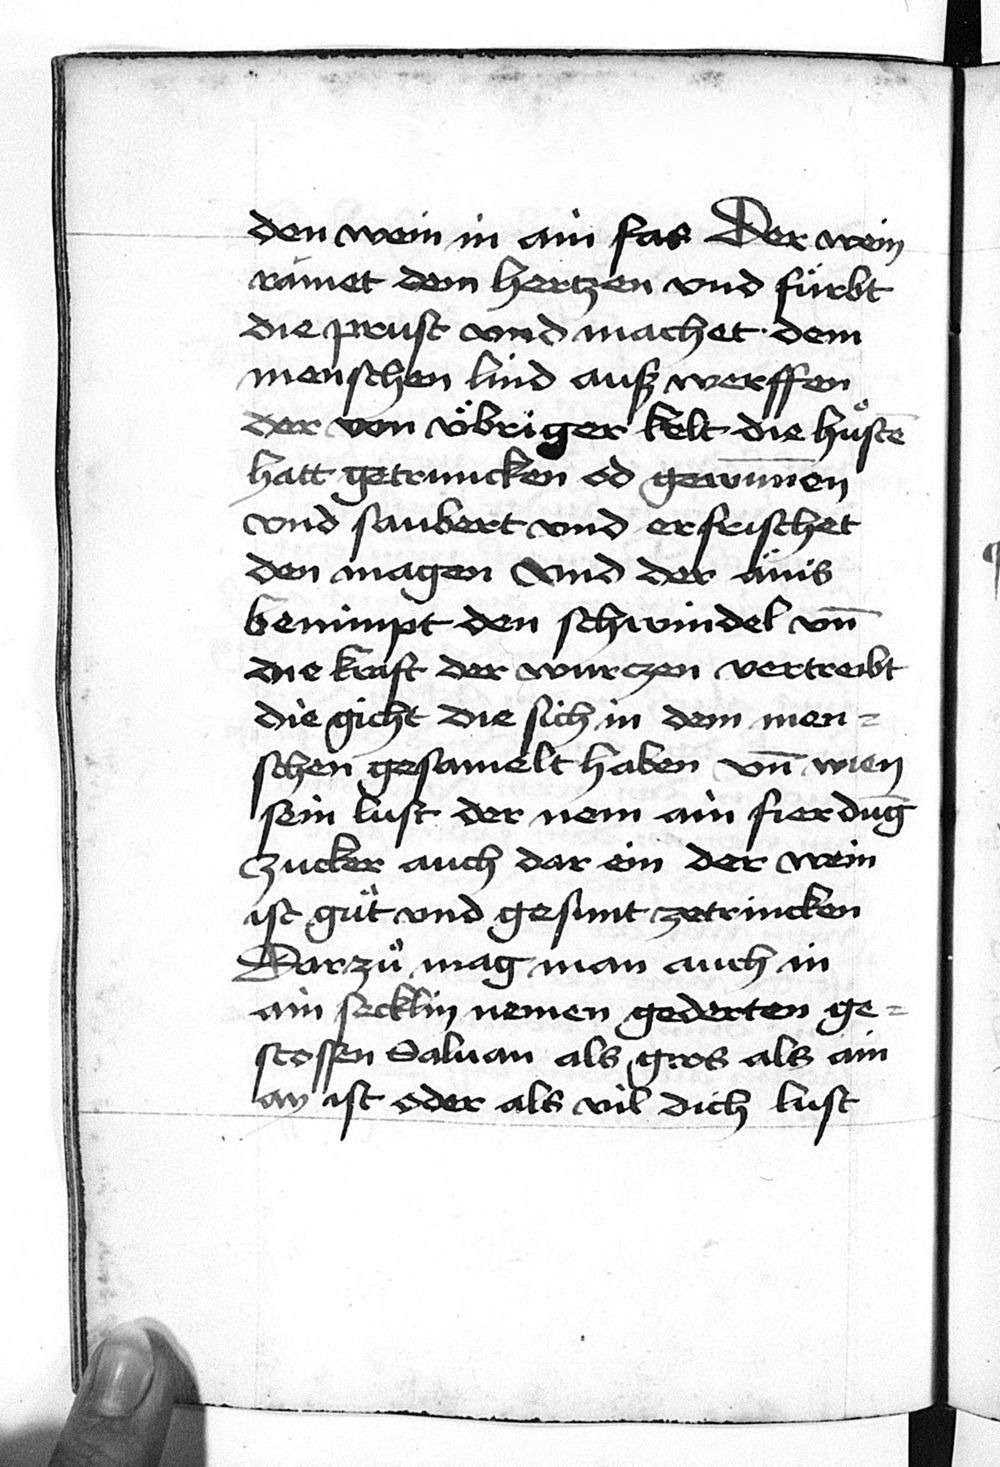 den wein in ain fas Der wein
rämet dem hertzen vnd fürbt
die prust vnd machet dem
menschen lind auß werffen
der von vͤbriger kelt die huͦstē
hatt getruncken od gewūnen
vnd saubert vnd erfrischet
den magen Vnd der änis
benimpt den schwindel vn̄
die kraft der wurczen vertreibt
die gicht die sich in dem men=
schen gesamelt haben vn̄ wien
sein lust der nem ain fierdung
zucker auch dar ein der wein
ist guͦt vnd gesunt zetrincken
Darzuͦ mag man auch in
ain secklin nemen gederten ge=
stossen Saluan als gros als ain
ay ist oder als vil dich lust